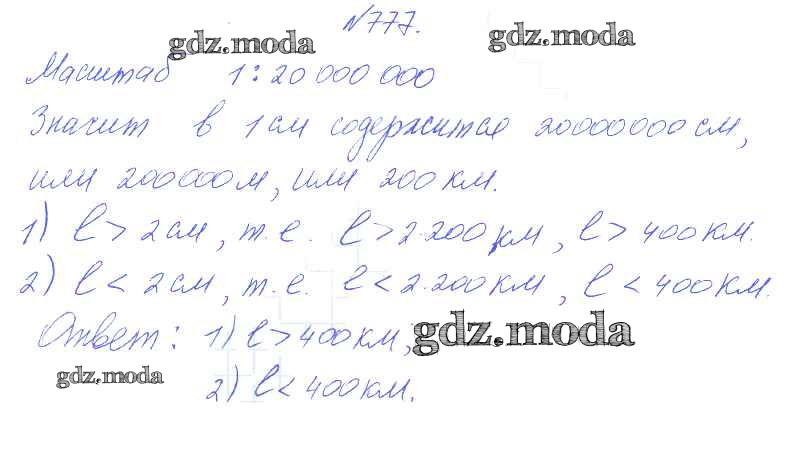 №777.
gdz.moda gdz.moda
Масштаб 1:20 000 000
Значит в 1 см содержится 20000000 см,
или 200000 м, или 200 км.
1) l > 2 см, т.е. l > 2·200 км, l > 400 км.
2) l < 2 см, т.е. l < 2·200 км, l < 400 км.
Ответ: 1) l > 400 км, gdz.moda
gdz.moda 2) l < 400 км.